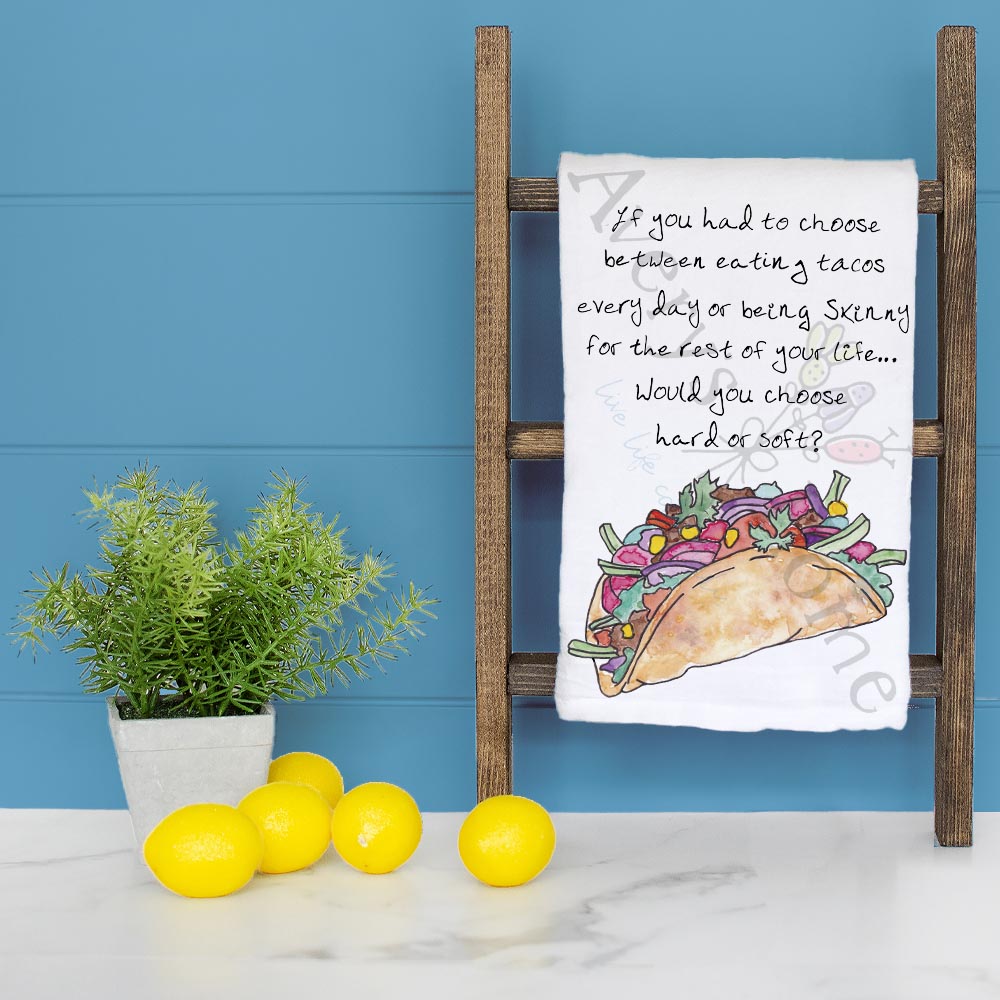 If you had to choose
between eating tacos
every day or being Skinny
for the rest of your life...
Would you choose
hard or soft?
Averys Home
live life